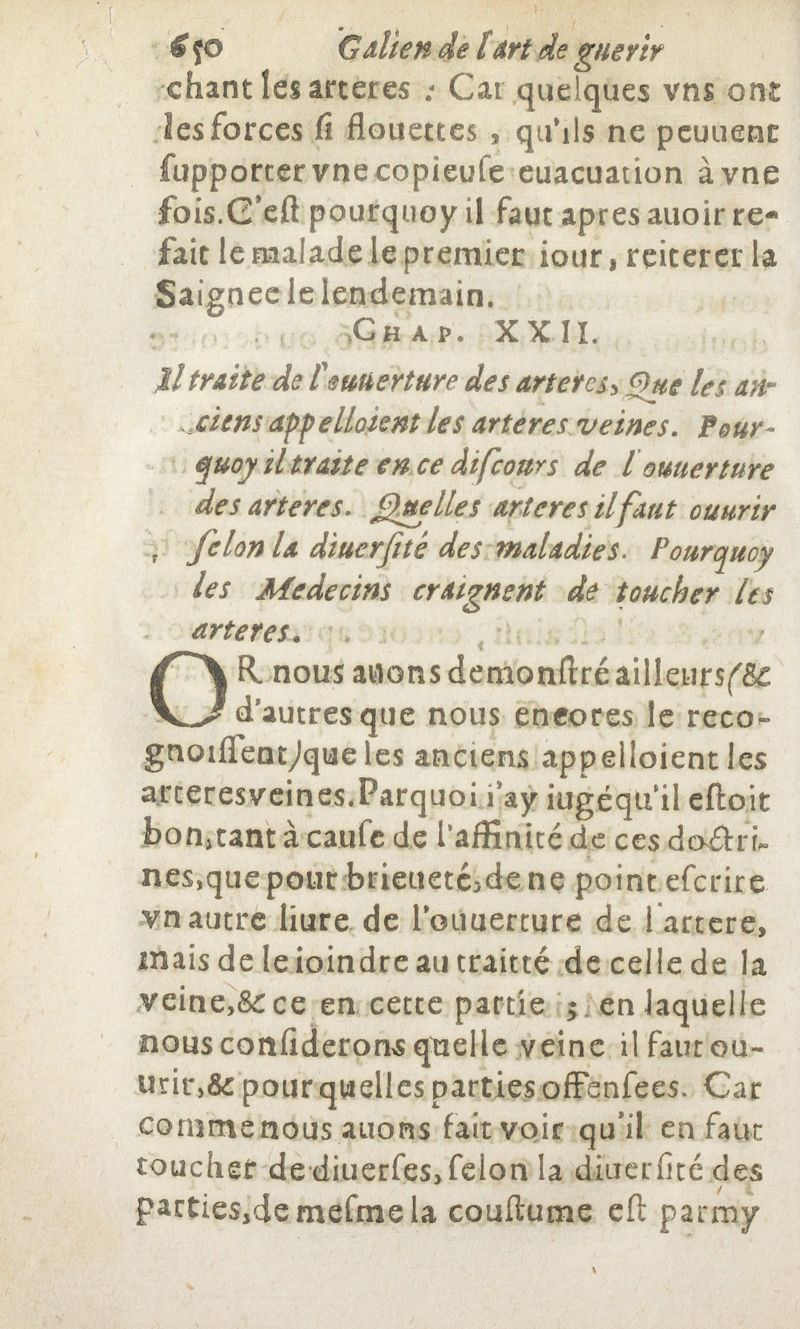 650 Galien de l'art de guerir
chant les arteres : Car quelques vns ont
les forces ſi flouettes , qu'ils ne peuuent
ſupporter vne copieuſe euacuation à vne
fois. C'eſt pourquoy il faut apres auoir re-
fait le malade le premier iour, reiterer la
Saignee le lendemain.
CHAP. XXII.
Il traite de l'ouuerture des arteres, Que les an-
ciens appelloient les arteres veines. Pour-
quoy il traite en ce diſcours de l'ouuerture
des arteres. Quelles arteres il faut ouurir
ſelon la diuerſité des maladies. Pourquoy
les Medecins craignent de toucher les
arteres.
OR nous auons demonſtré ailleurs (&
d'autres que nous encores le reco-
gnoiſſent) que les anciens appelloient les
arteres veines. Parquoi i'ay iugé qu'il eſtoit
bon, tant à cauſe de l'affinité de ces doctri-
nes, que pour brieueté, de ne point eſcrire
vn autre liure de l'ouuerture de l'artere,
mais de le ioindre au traitté de celle de la
veine, & ce en cette partie ; en laquelle
nous conſiderons quelle veine il faut ou-
urir, & pour quelles parties offenſees. Car
comme nous auons fait voir qu'il en faut
toucher de diuerſes, ſelon la diuerſité des
parties, de meſme la couſtume eſt parmy